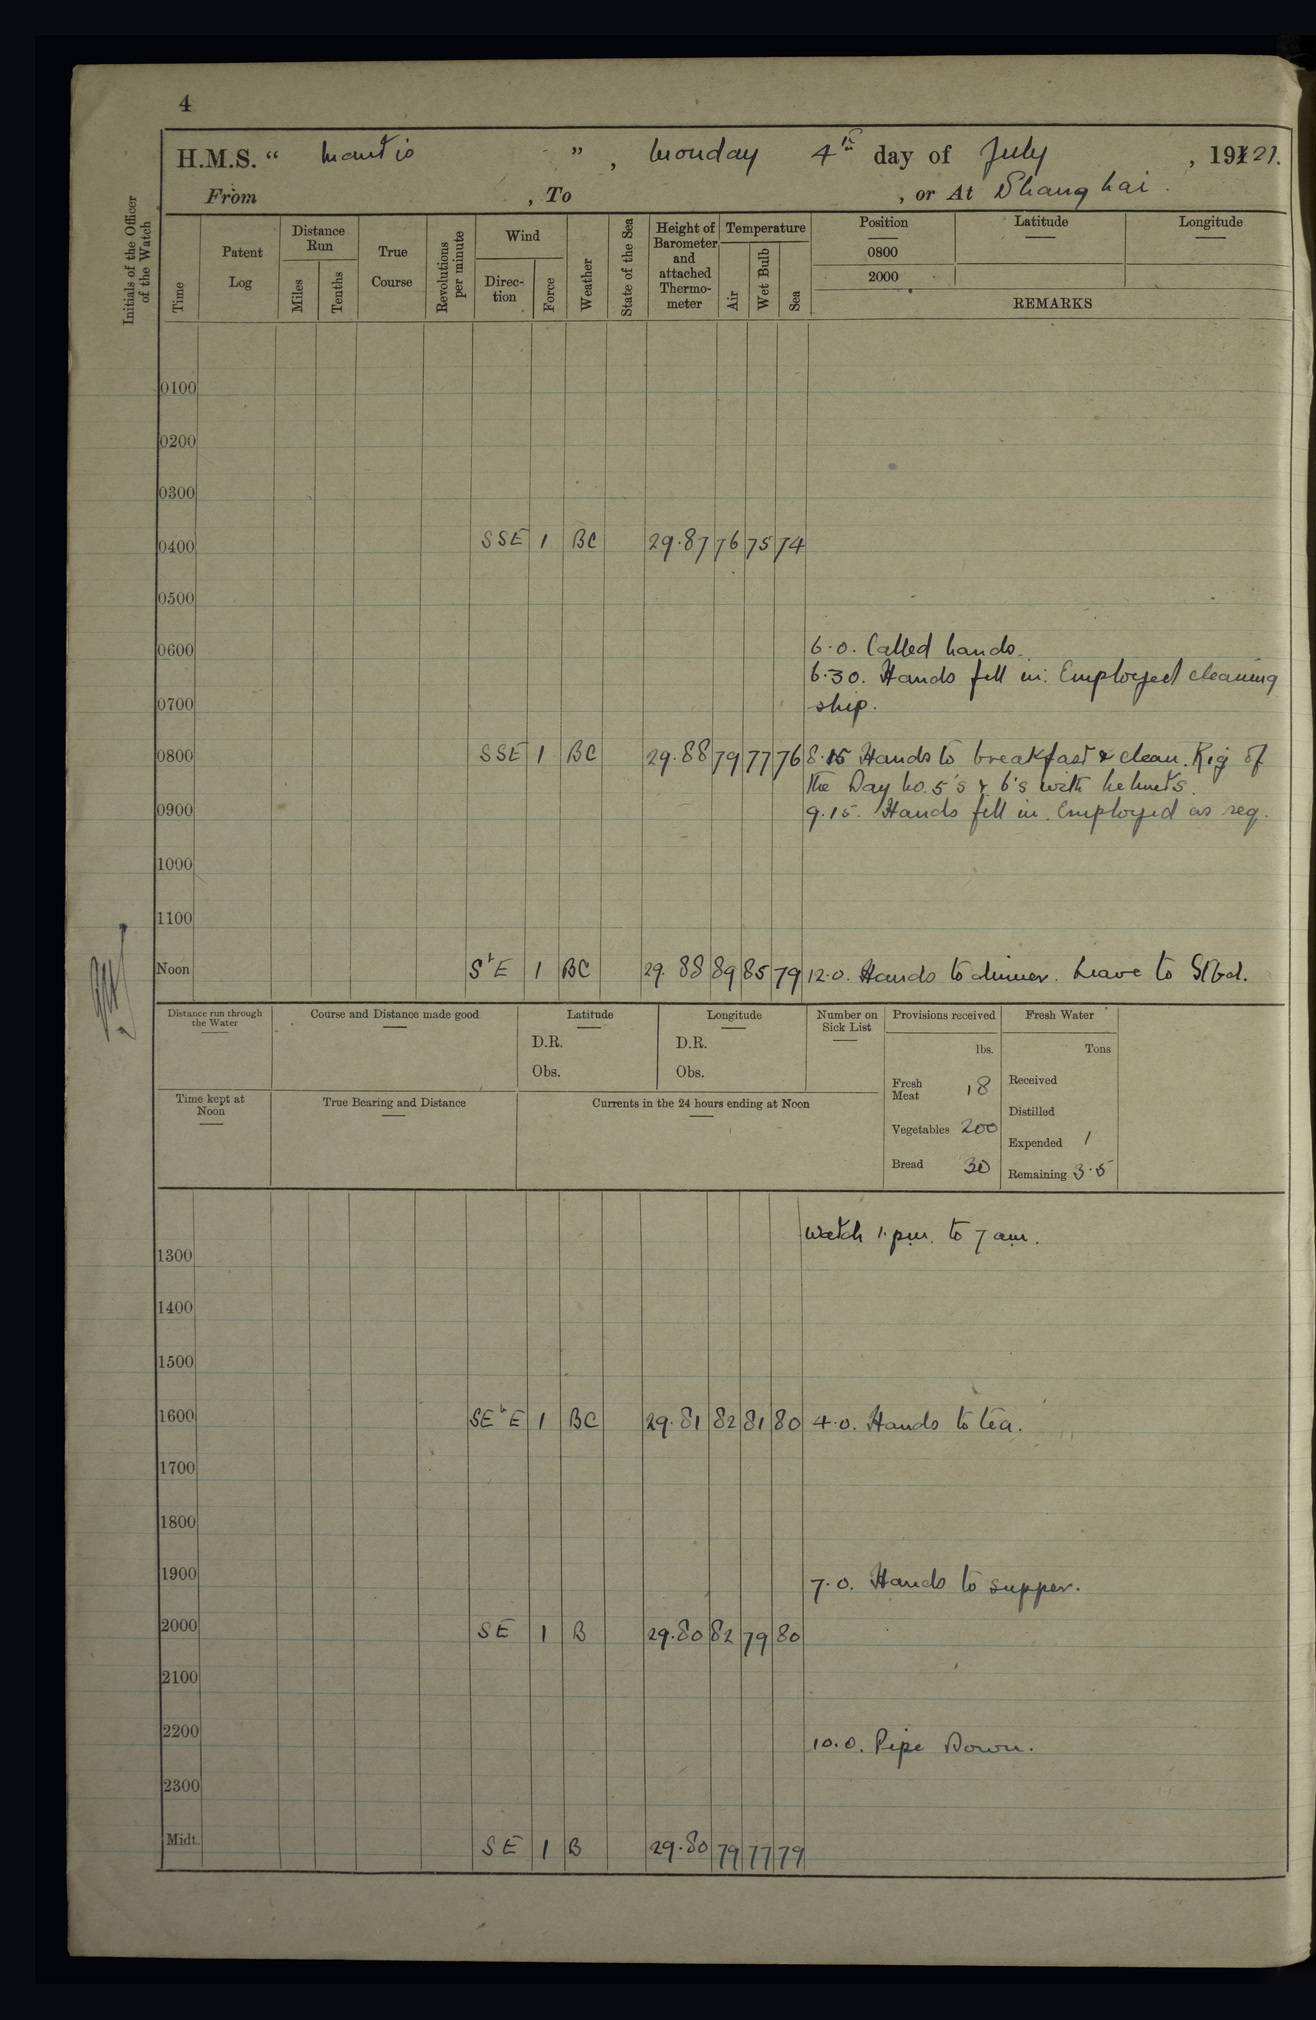 4
H.M.S. “ Mantis ” , Monday 4th day of July , 1921.
From , To , or At Shanghai.
Initials of the Officer of the Watch
Time
Patent Log
Distance Run
Miles
Tenths
True Course
Revolutions per minute
Wind
Direc-tion
Force
Weather
State of the Sea
Height of Barometer and attached Thermo-meter
Temperature
Air
Wet Bulb
Sea
Position
Latitude
Longitude
0800
2000
REMARKS
0100
0200
0300
0400 SSE 1 BC 29.87 76 75 74
0500
0600 6.0. Called hands.
6.30. Hands fell in: Employed cleaning
0700 ship.
0800 SSE 1 BC 29.88 79 77 76 8.15 Hands to breakfast & clean. Rig of
the Day No. 5's & 6's with helmets.
0900 9.15. Hands fell in. Employed as req.
1000
1100
Noon SbE 1 BC 29.88 89 85 79 12.0. Hands to dinner. Leave to Stbd.
Distance run through the Water
Course and Distance made good
Latitude
D.R.
Obs.
Longitude
D.R.
Obs.
Number on Sick List
Provisions received
lbs.
Fresh Meat 18
Vegetables 200
Bread 30
Fresh Water
Tons
Received
Distilled
Expended 1
Remaining 3.5
Time kept at Noon
True Bearing and Distance
Currents in the 24 hours ending at Noon
watch 1. pm. to 7 am.
1300
1400
1500
1600 SEbE 1 BC 29.81 82 81 80 4.0. Hands to tea.
1700
1800
1900 7.0. Hands to supper.
2000 SE 1 B 29.80 82 79 80
2100
2200 10.0. Pipe Down.
2300
Midt. SE 1 B 29.80 79 77 79